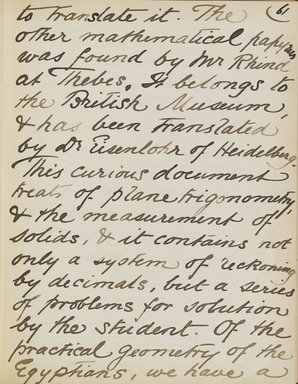 61
to translate it. The
other mathematical papyrus
was found by Mr Rhind
at Thebes. It belongs to
the British Museum,
& has been translated
by Dr Eisenlohr of Heidelberg.
This curious document
treats of plane trigonometry,
& the measurement of
solids, & it contains not
only a system of reckoning
by decimals, but a series
of problems for solution
by the student. Of the
practical geometry of the
Egyptians, we have a